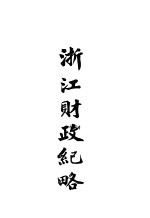 浙江財政紀略